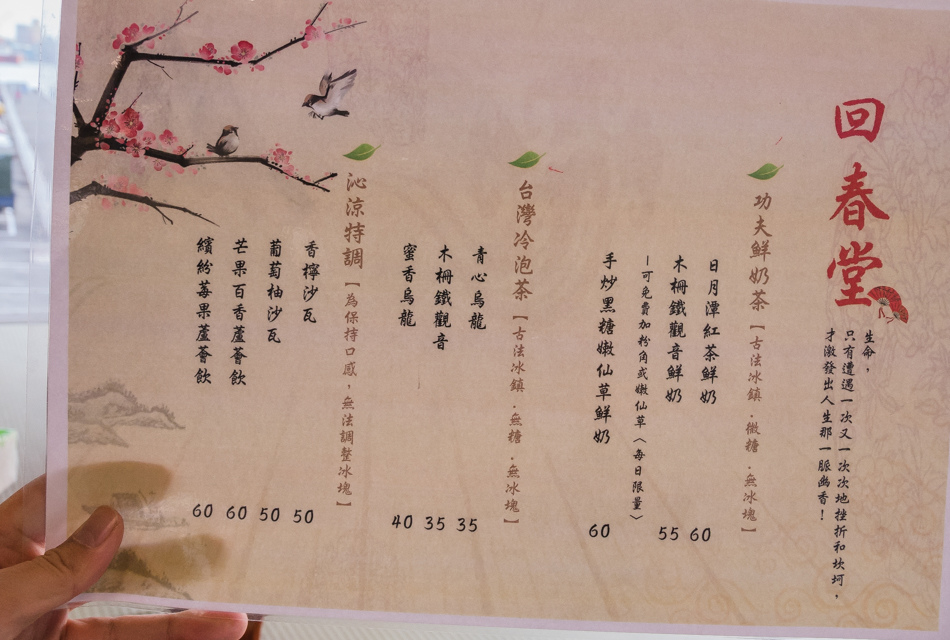 回春堂
生命，
只有遭遇一次又一次次地挫折和坎坷，
才激發出人生那一脈幽香！
功夫鮮奶茶【古法冰鎮．微糖．無冰塊】
日月潭紅茶鮮奶 60
木柵鐵觀音鮮奶 55
－可免費加粉角或嫩仙草〈每日限量〉
手炒黑糖嫩仙草鮮奶 60
台灣冷泡茶【古法冰鎮．無糖．無冰塊】
青心烏龍 35
木柵鐵觀音 35
蜜香烏龍 40
沁涼特調【為保持口感，無法調整冰塊】
香檸沙瓦 50
葡萄柚沙瓦 50
芒果百香蘆薈飲 60
繽紛莓果蘆薈飲 60